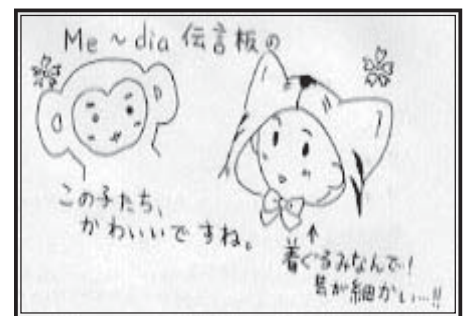 Me～dia 伝言板の
この子たち、
かわいいですね。
↑
着ぐるみなんで!
芸が細かい…!!